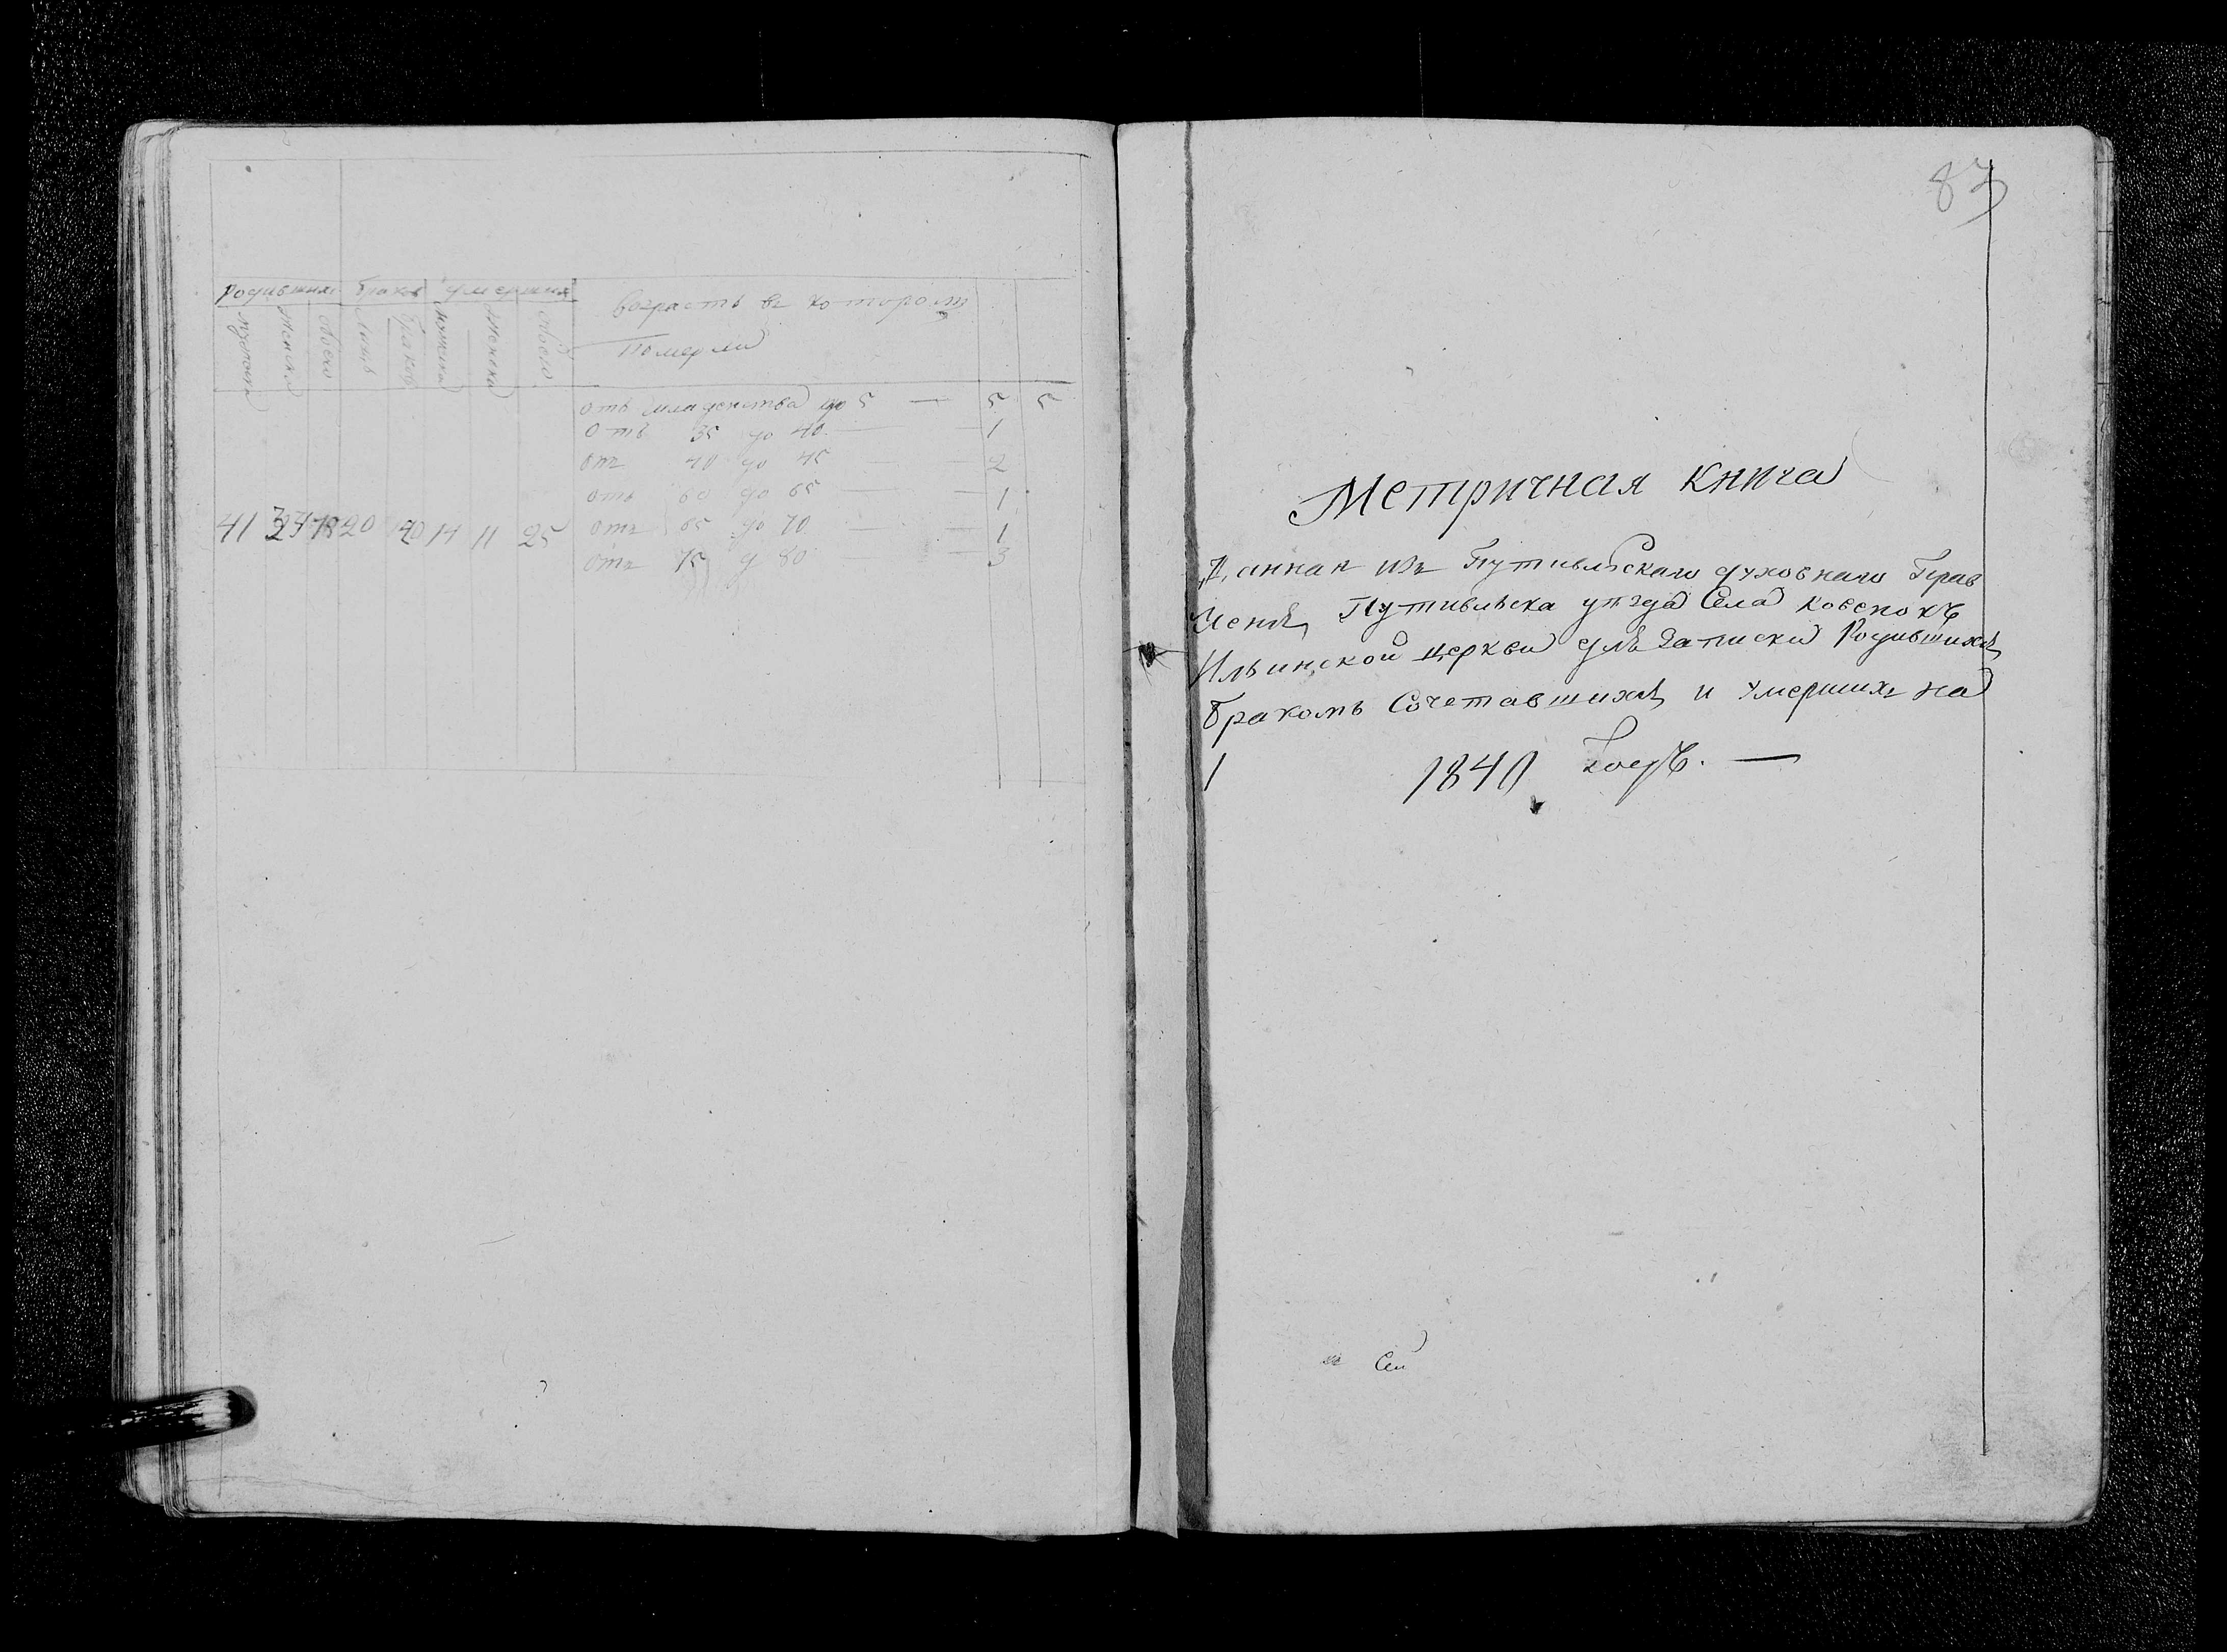 Родившихъ Браковъ умершихъ
возрастъ въ которомъ
померли
мужеска женска обоего лицъ браковъ мужеска женска обоего
отъ младенства до 5 — 5 5
отъ 35 до 40 — 1
отъ 40 до 45 — 2
отъ 60 до 65 — 1
отъ 65 до 70 — 1
отъ 75 д 80 — 3
41 20 14 11 25
Метричная книга
Данная изъ Путивльскаго духовнаго Прав
ленія Путивльска уѣзда Села Ковенокъ
Ильинской церкви для Записки Родившихся
бракомъ Сочетавшихся и умершихъ на
1840 годъ. —